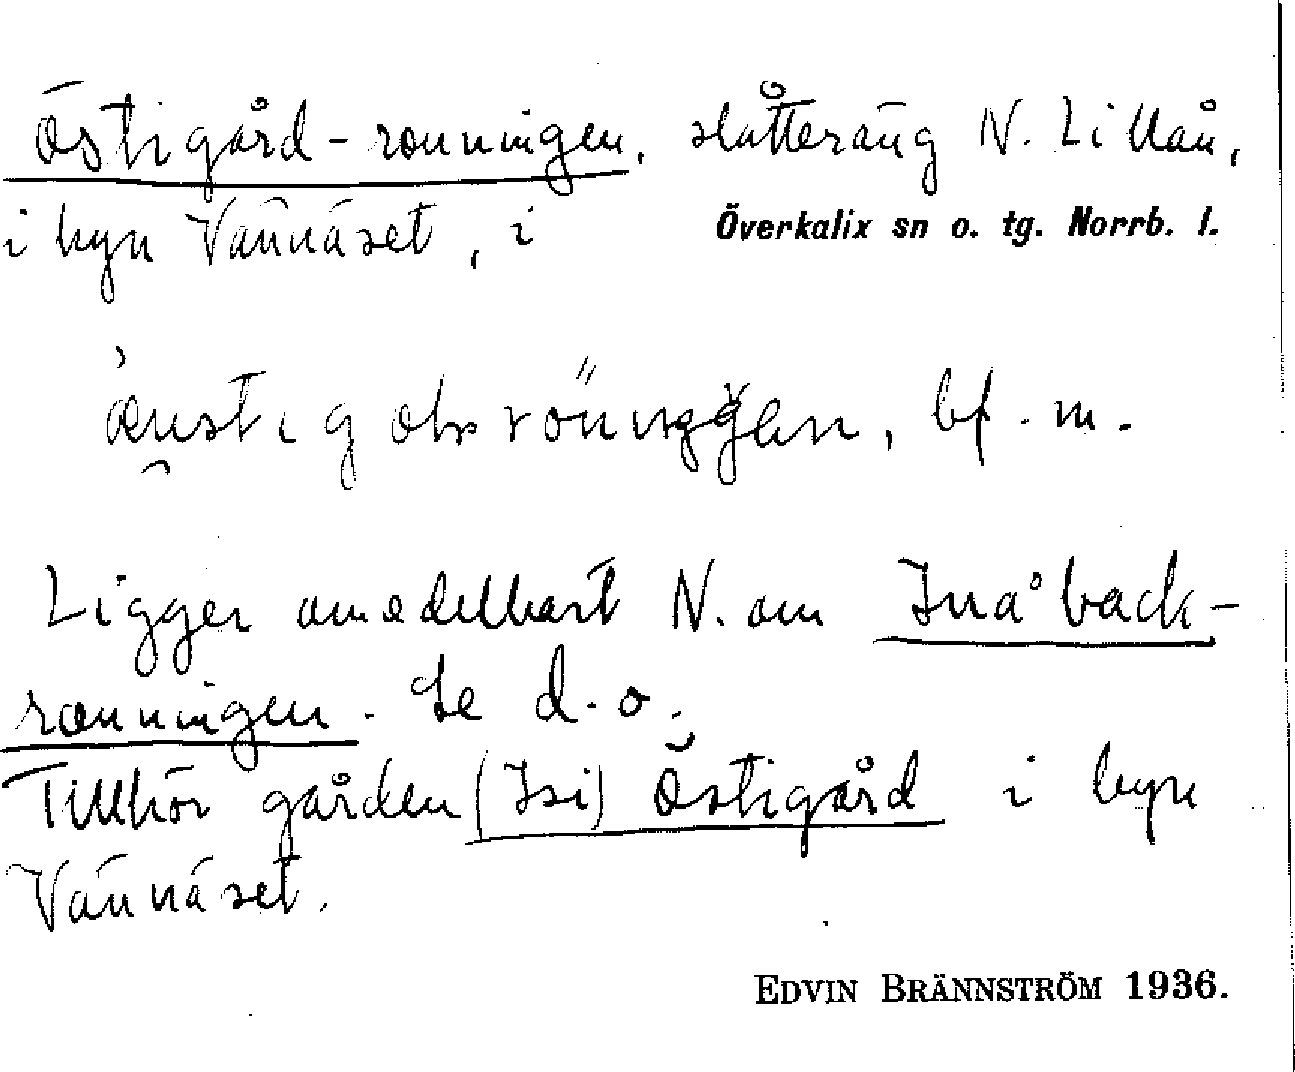 Östigård-rönningen, slåtteräng N. Lillån,
i byn Vännäset, i Överkalix sn o. tg. Norrb. l.
bf. m.
Ligger omedelbart N. om Inåback-
rönningen. Se d. o.
Tillhör gården (Isi) Östigård i byn
Vännäset.
EDVIN BRÄNNSTRÖM 1936.